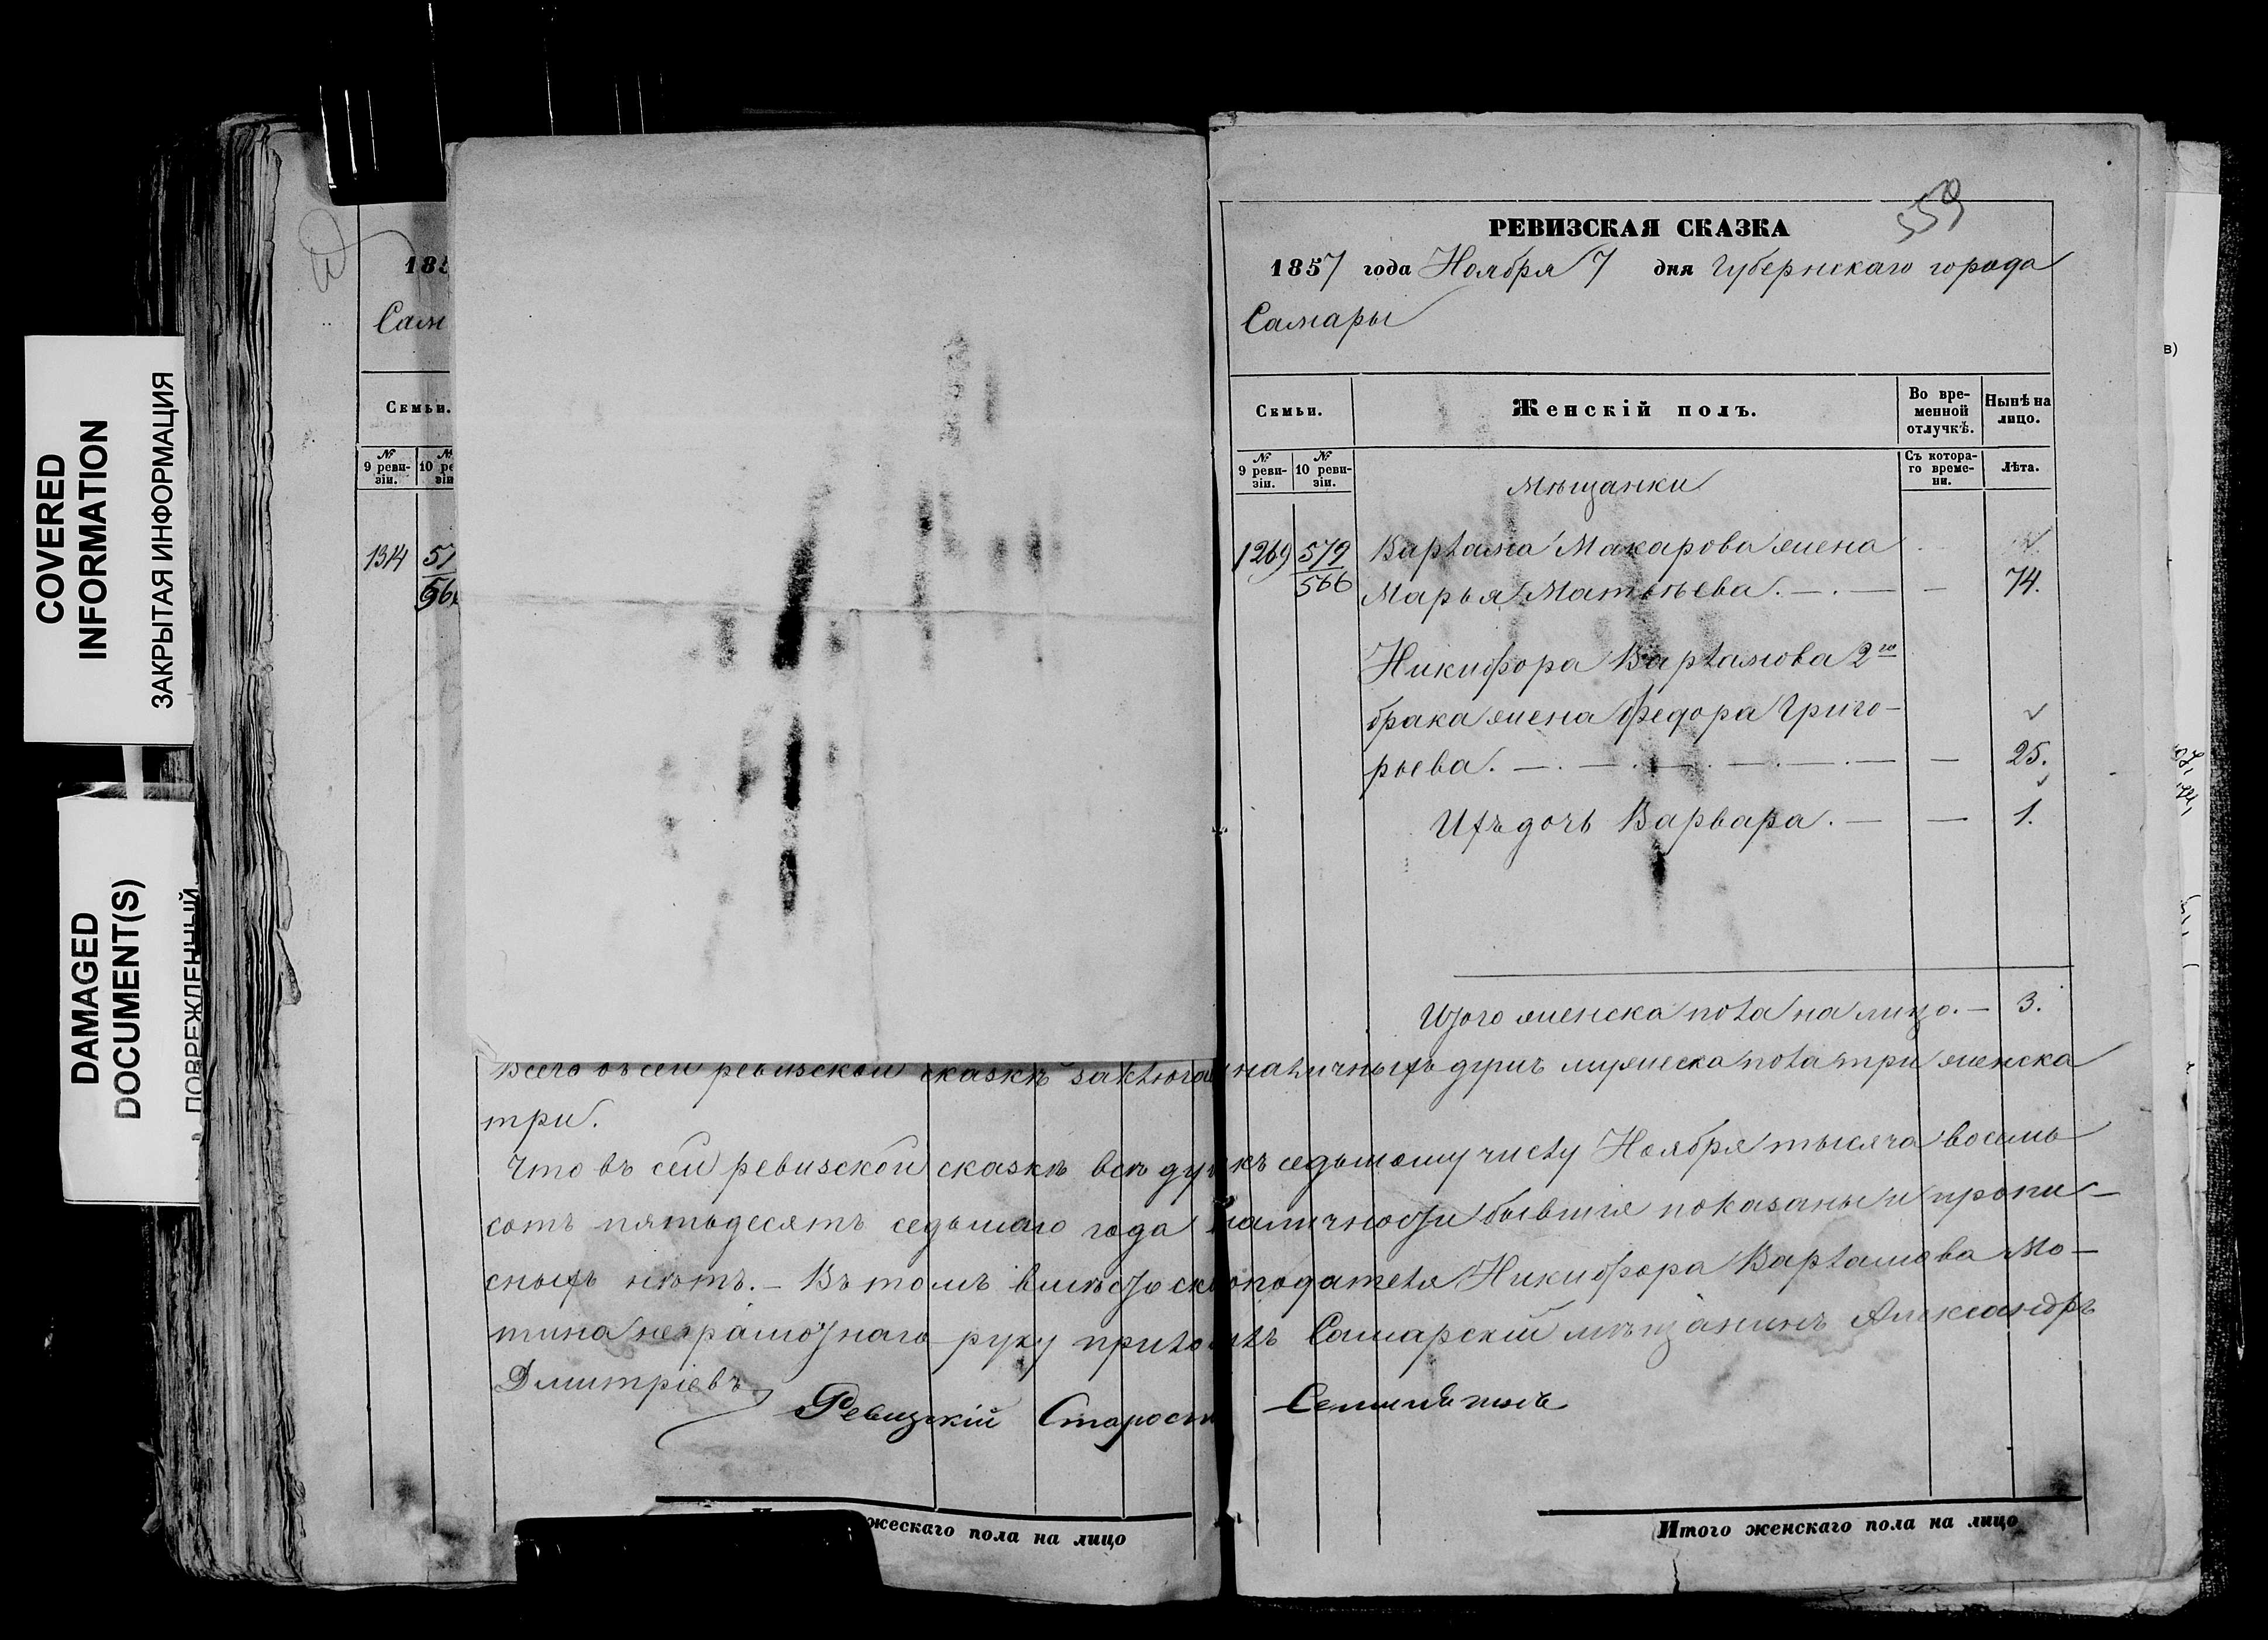 COVERED
INFORMATION
ЗАКРЫТАЯ ИНФОРМАЦИЯ
DAMAGED
DOCUMENT(S)
ПОВРЕЖДЕННЫЙ
185
Сам
Семьи.
№ 9 реви-
зіи.
№ 10 ре
зіи
1314
57
56
559
РЕВИЗСКАЯ СКАЗКА
1857 года Ноября 7 дня Губернскаго города
Самары
Семьи.
Женскій полъ.
Во вре-
менной
отлучкѣ.
Нынѣ на
лицо.
№ 9 реви-
зіи.
№ 10 реви-
зіи.
Съ котора-
го време-
ни.
Лѣта.
Мѣщанки
1269 579 Варлама Макарова жена
566 Марья Матвѣева. — 74.
Никифора Варламова 2го
брака жена Федора Григо-
рьева. — 25.
Ихъ дочь Варвара. — 1.
Итого женска пола на лицо. — 3.
Всего въ сей ревизской сказкѣ заключа наличныхъ душъ мужеска пола три женска
три.
Что въ сей ревизской сказкѣ всѣ ду къ седьмому числу Ноября тысяча восемь
сотъ пятьдесятъ седьмаго года наличности бывшія показаны и пропи-
сныхъ нѣтъ. — Въ томъ вмѣсто ск оподателя Никифора Варламова Мо-
тина неграмотнаго руку прило илъ Самарскій мѣщанинъ Александръ
Дмитріевъ
Ревизскій Старост
жескаго пола на лицо
Итого женскаго пола на лицо